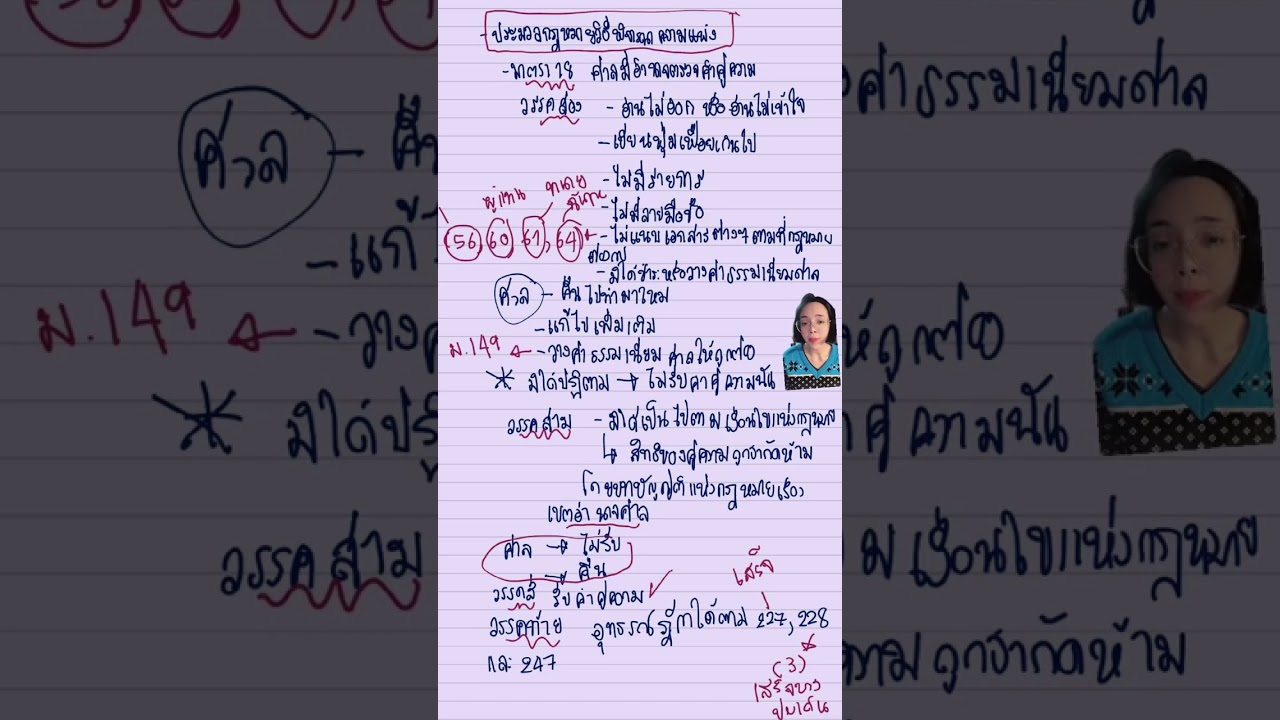 - ประมวลกฎหมายวิธีพิจารณาความแพ่ง
- มาตรา 18 ศาลมีอำนาจตรวจคำคู่ความ
วรรคสอง - อ่านไม่ออก หรืออ่านไม่เข้าใจ
- เขียนฟุ่มเฟือยเกินไป
- ไม่มีรายการ
- ไม่มีลายมือชื่อ
ผู้แทน ทนาย
56 60 61, 64 - ไม่แนบเอกสารต่างๆ ตามที่กฎหมาย
ต้องการ
- มิได้ชำระหรือวางค่าธรรมเนียมศาล
ศาล - คืนไปทำมาใหม่
- แก้ไขเพิ่มเติม
ม.149 ← - วางค่าธรรมเนียมศาลให้ถูกต้อง
* มิได้ปฏิบัติตาม → ไม่รับคำคู่ความนั้น
วรรคสาม - มิได้เป็นไปตามเงื่อนไขแห่งกฎหมาย
↳ สิทธิของคู่ความถูกจำกัดห้าม
โดยบทบัญญัติแห่งกฎหมายเรื่อง
เขตอำนาจศาล
ศาล → ไม่รับ
→ คืน
วรรคสี่ รับคำคู่ความ ✓
เสร็จ
วรรคท้าย อุทธรณ์ฎีกาได้ตาม 227, 228
และ 247
* (3)
เสร็จบาง
ประเด็น